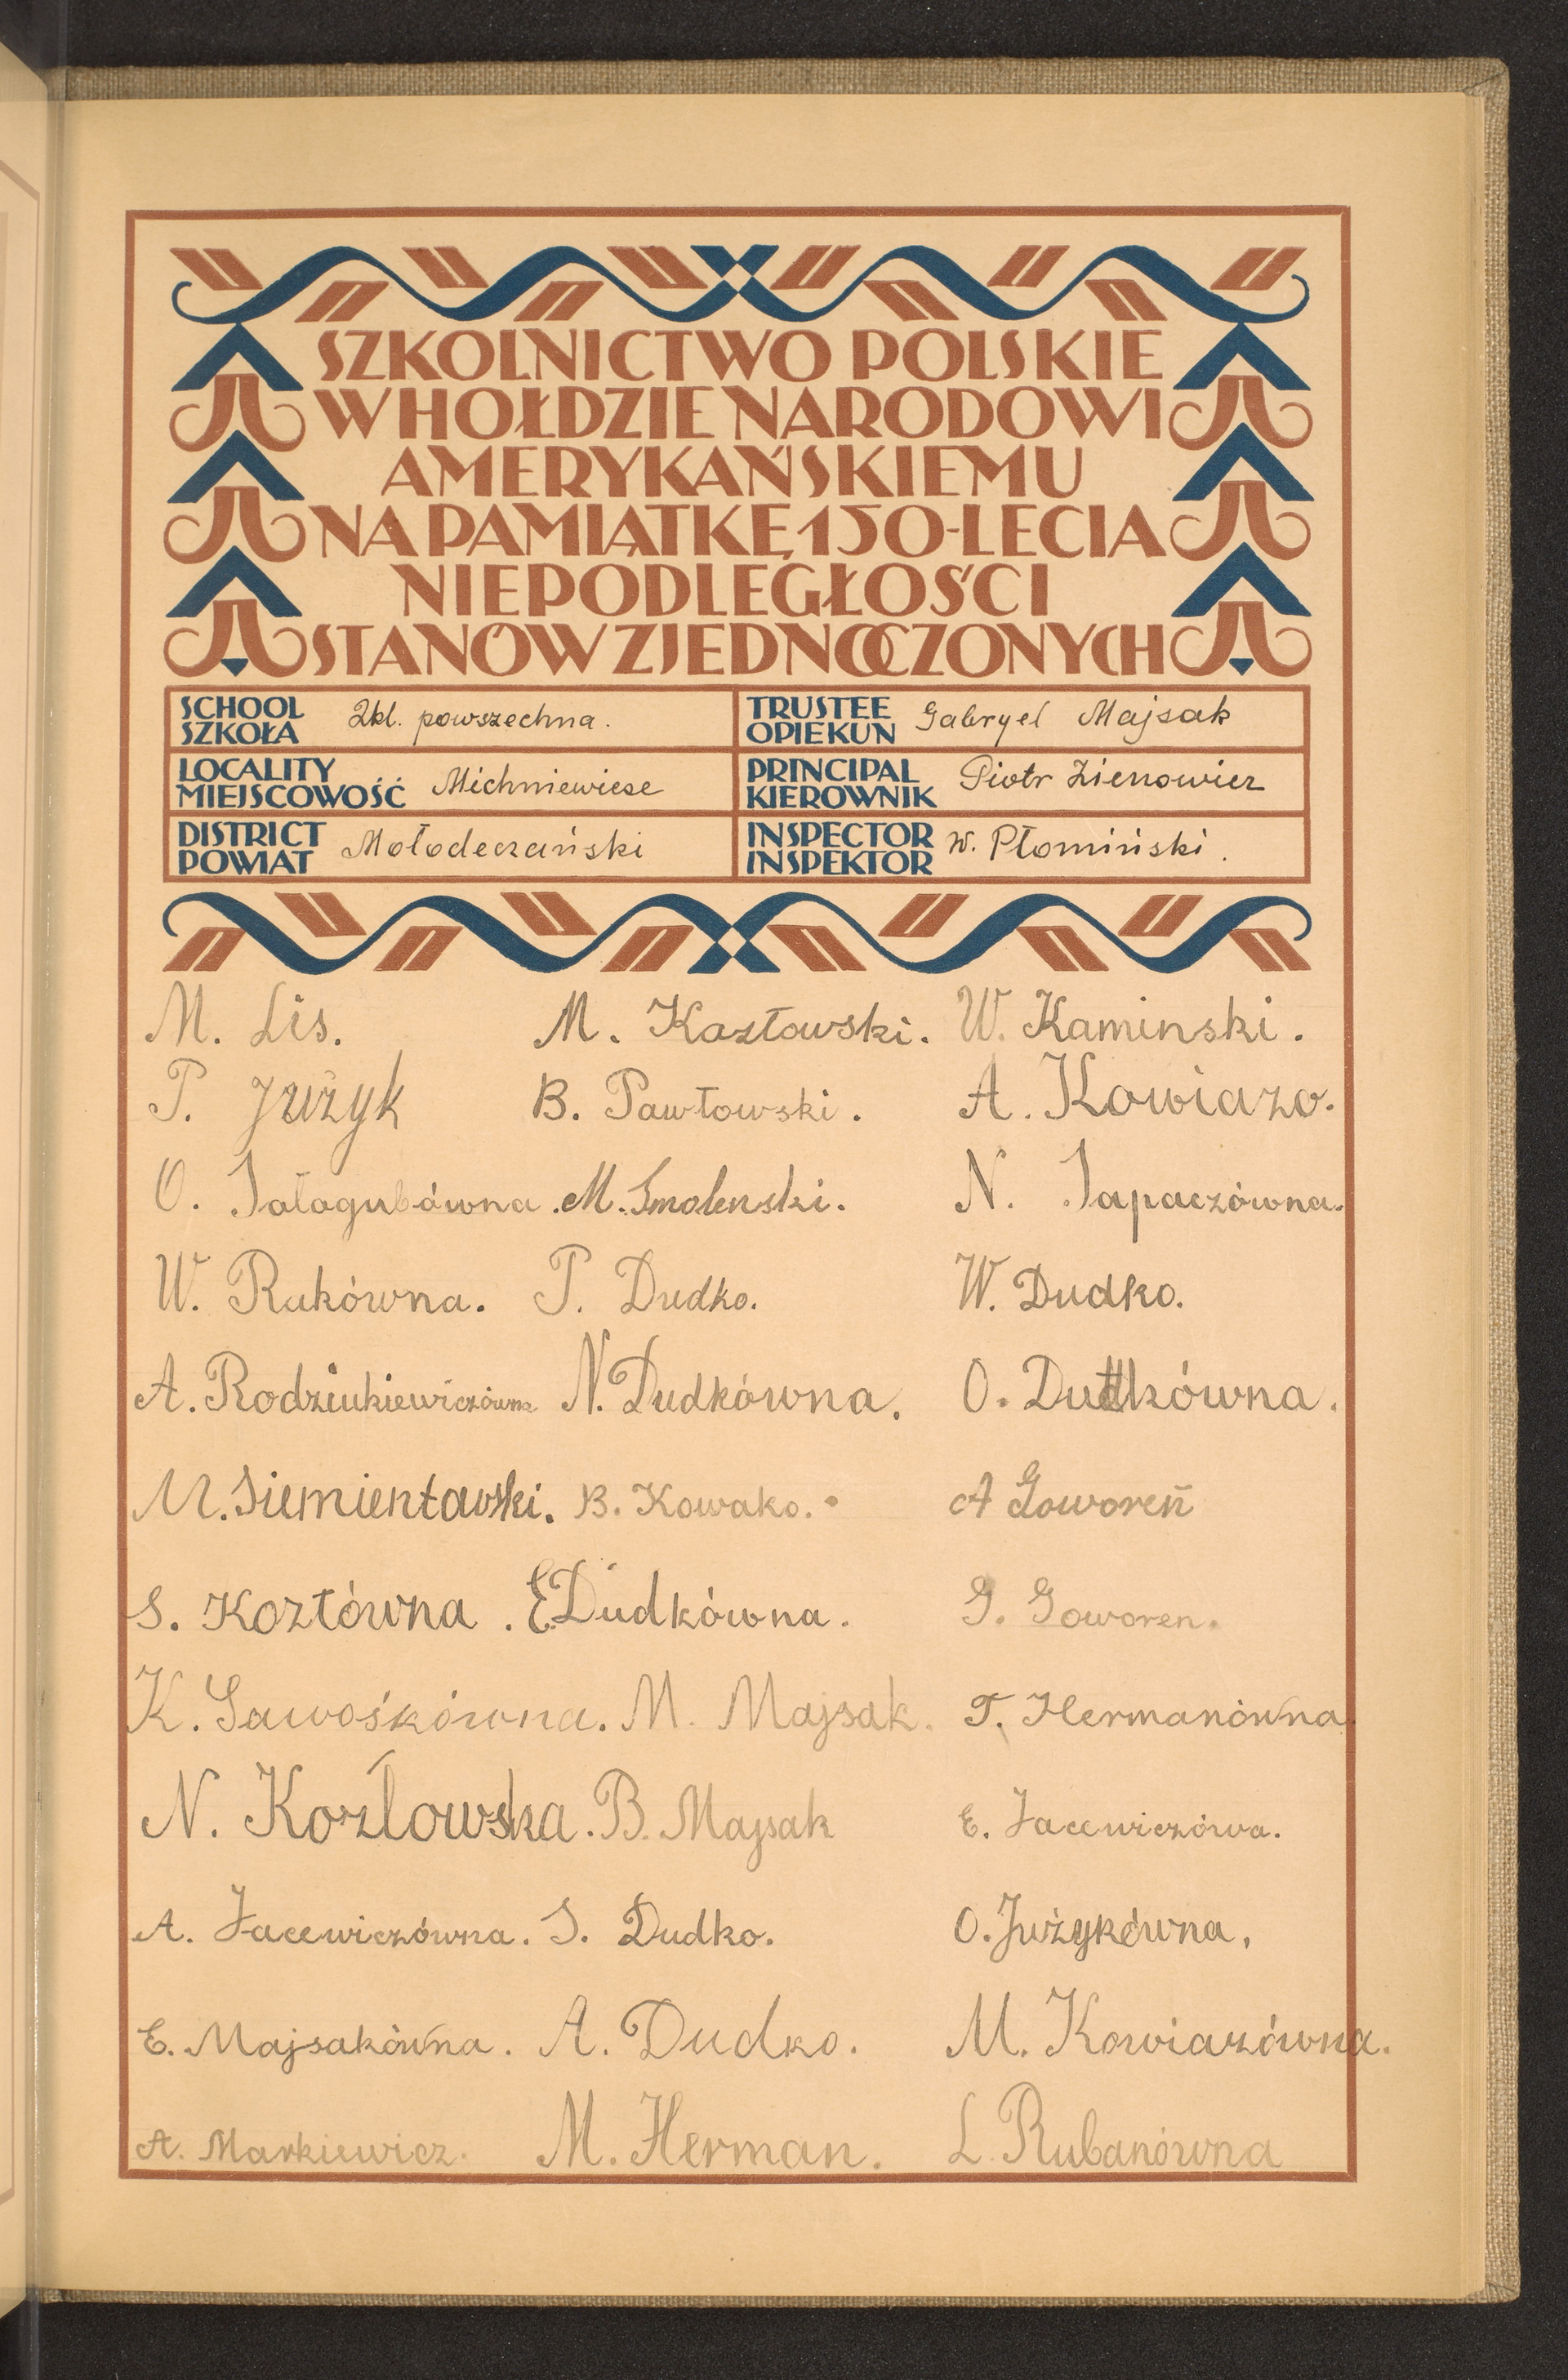 SZKOLNICTWO POLSKIE
W HOŁDZIE NARODOWI
AMERYKAŃSKIEMU
NA PAMIĄTKĘ 150-LECIA
NIEPODLEGŁOŚCI
STANÓW ZJEDNOCZONYCH
SCHOOL
SZKOŁA
2kl. powszechna.
TRUSTEE
OPIEKUN
Gabryel Majsak
LOCALITY
MIEJSCOWOŚĆ
Michniewicze
PRINCIPAL
KIEROWNIK
Piotr Zienowicz
DISTRICT
POWIAT
Mołodeczański
INSPECTOR
INSPEKTOR
W. Płomiński.
M. Lis. M. Kazłowski. W. Kaminski.
P. Jużyk B. Pawłowski. A. Kowiazo.
O. Sałagubówna. M. Smolenski. N. Sapaczówna.
W. Rukówna. P. Dudko. W. Dudko.
A. Rodziukiewiczówna N. Dudkówna. O. Dudkówna.
M. Siemientawski. B. Kowako. A Goworeń
S. Kozłówna. E. Dudkówna. G. Goworen.
K. Sawośkówna. M. Majsak. T. Hermanówna
N. Kozlowska. B. Majsak E. Jacewiczówa.
A. Jacewiczówna. S. Dudko. O. Jużykówna,
E. Majsakówna. A. Dudko. M. Kowiazówna.
A. Markiewicz. M. Herman. L. Rubanówna